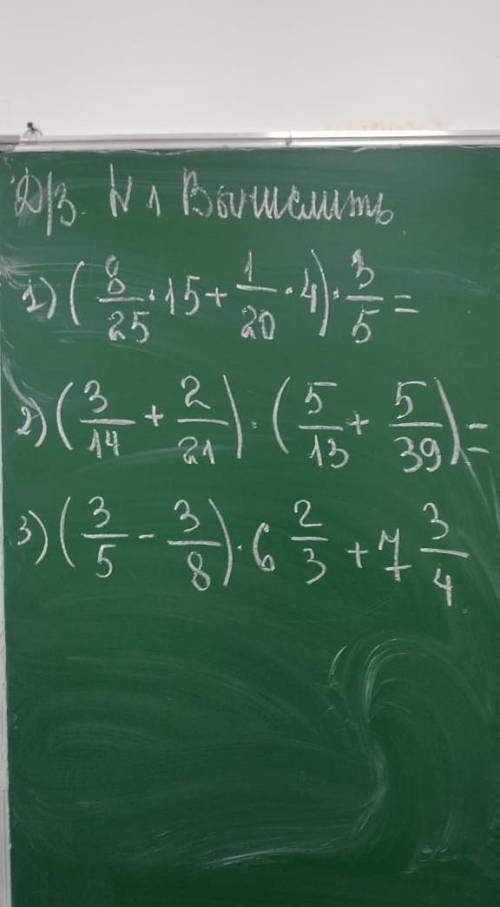 Д/З. N 1 Вычислить
1) (8/25 · 15 + 1/20 · 4) · 3/5 =
2) (3/14 + 2/21) · (5/13 + 5/39) =
3) (3/5 - 3/8) · 6 2/3 + 7 3/4